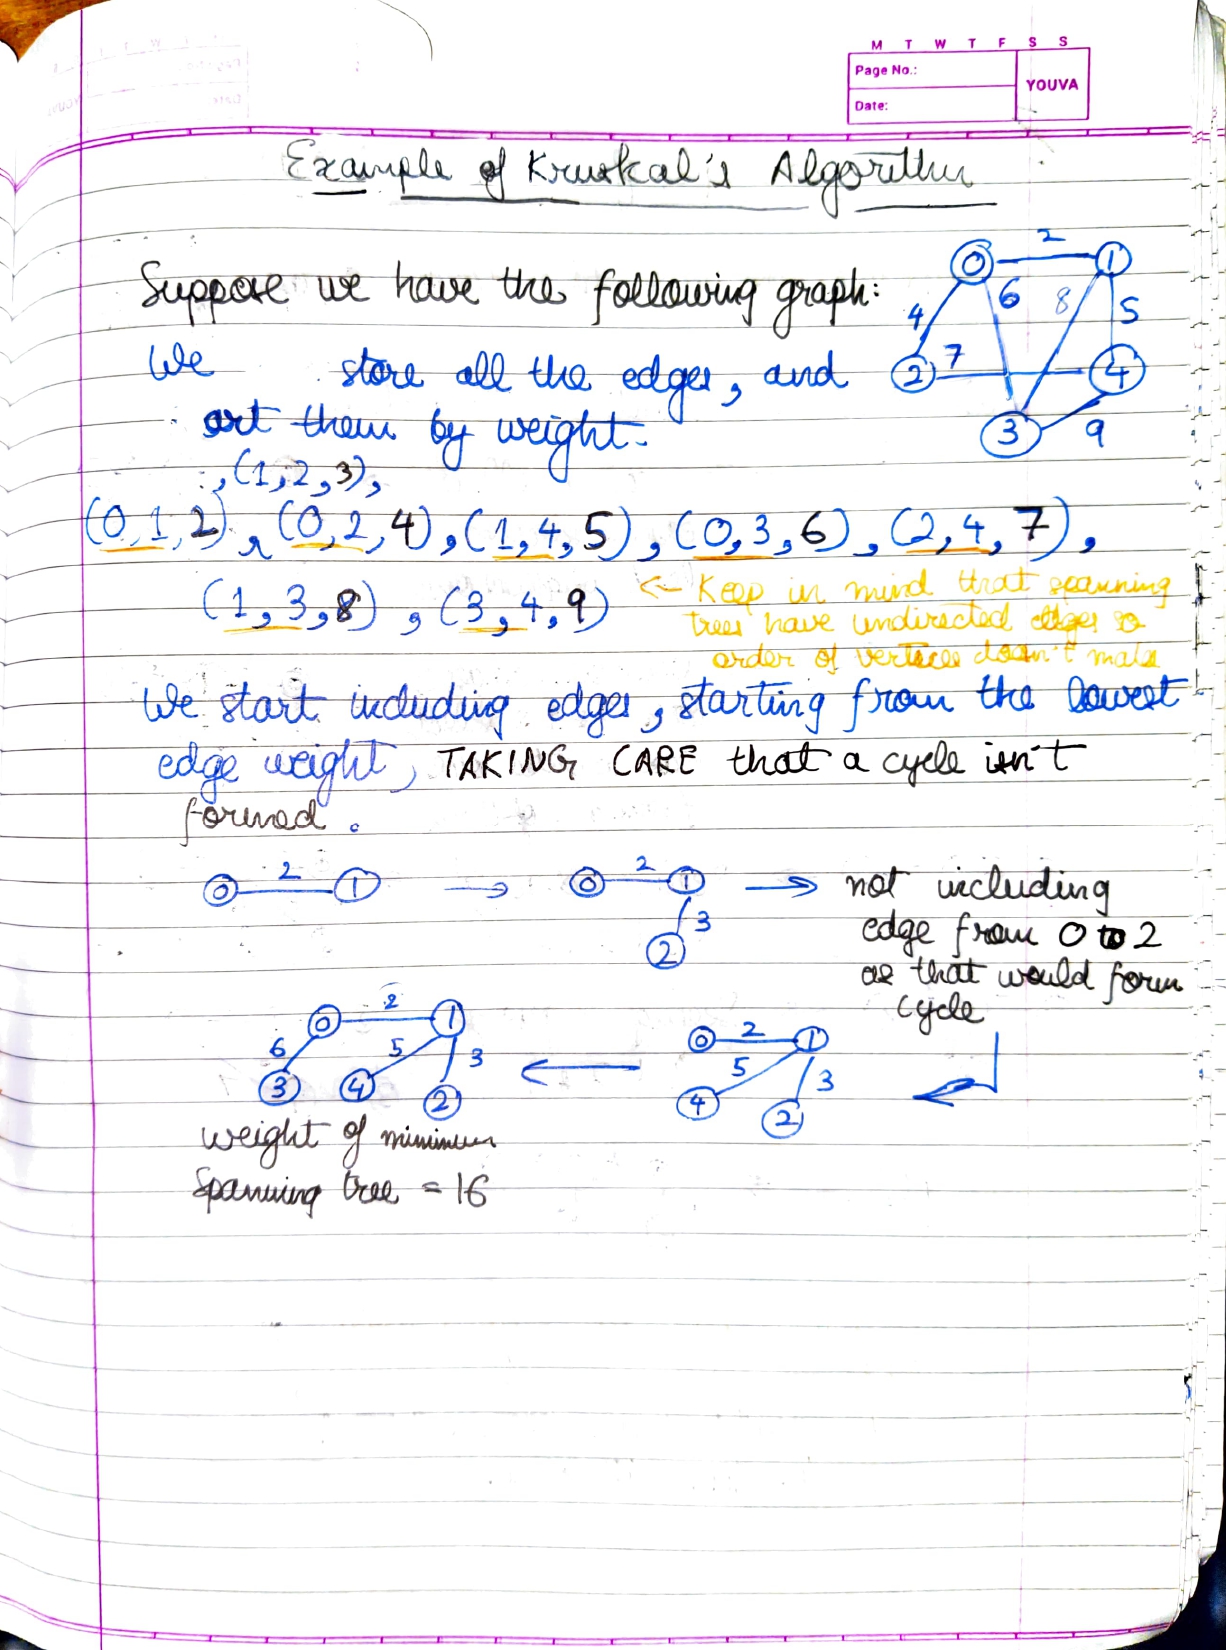 M T W T F S S
Page No.:
YOUVA
Date:
Example of Kruskal's Algorithm
Suppose we have the following graph:
0 2 1
4 6 8 5
2 7 4
3 9
We store all the edges, and
ort them by weight.
, (1,2,3),
(0,1,2), (0,2,4), (1,4,5), (0,3,6), (2,4,7),
(1,3,8), (3,4,9)
← Keep in mind that spanning
trees have undirected edges so
order of vertices doesn't
We start including edges, starting from the lowest
edge weight, TAKING CARE that a cycle isn't
formed.
0 2 1 → 0 2 1 → not including
3
2
edge from 0 to 2
as that would form
cycle
0 2 1
6 5 3
3 4 2
←
0 2 1
5 3
4 2
weight of minimum
spanning tree = 16